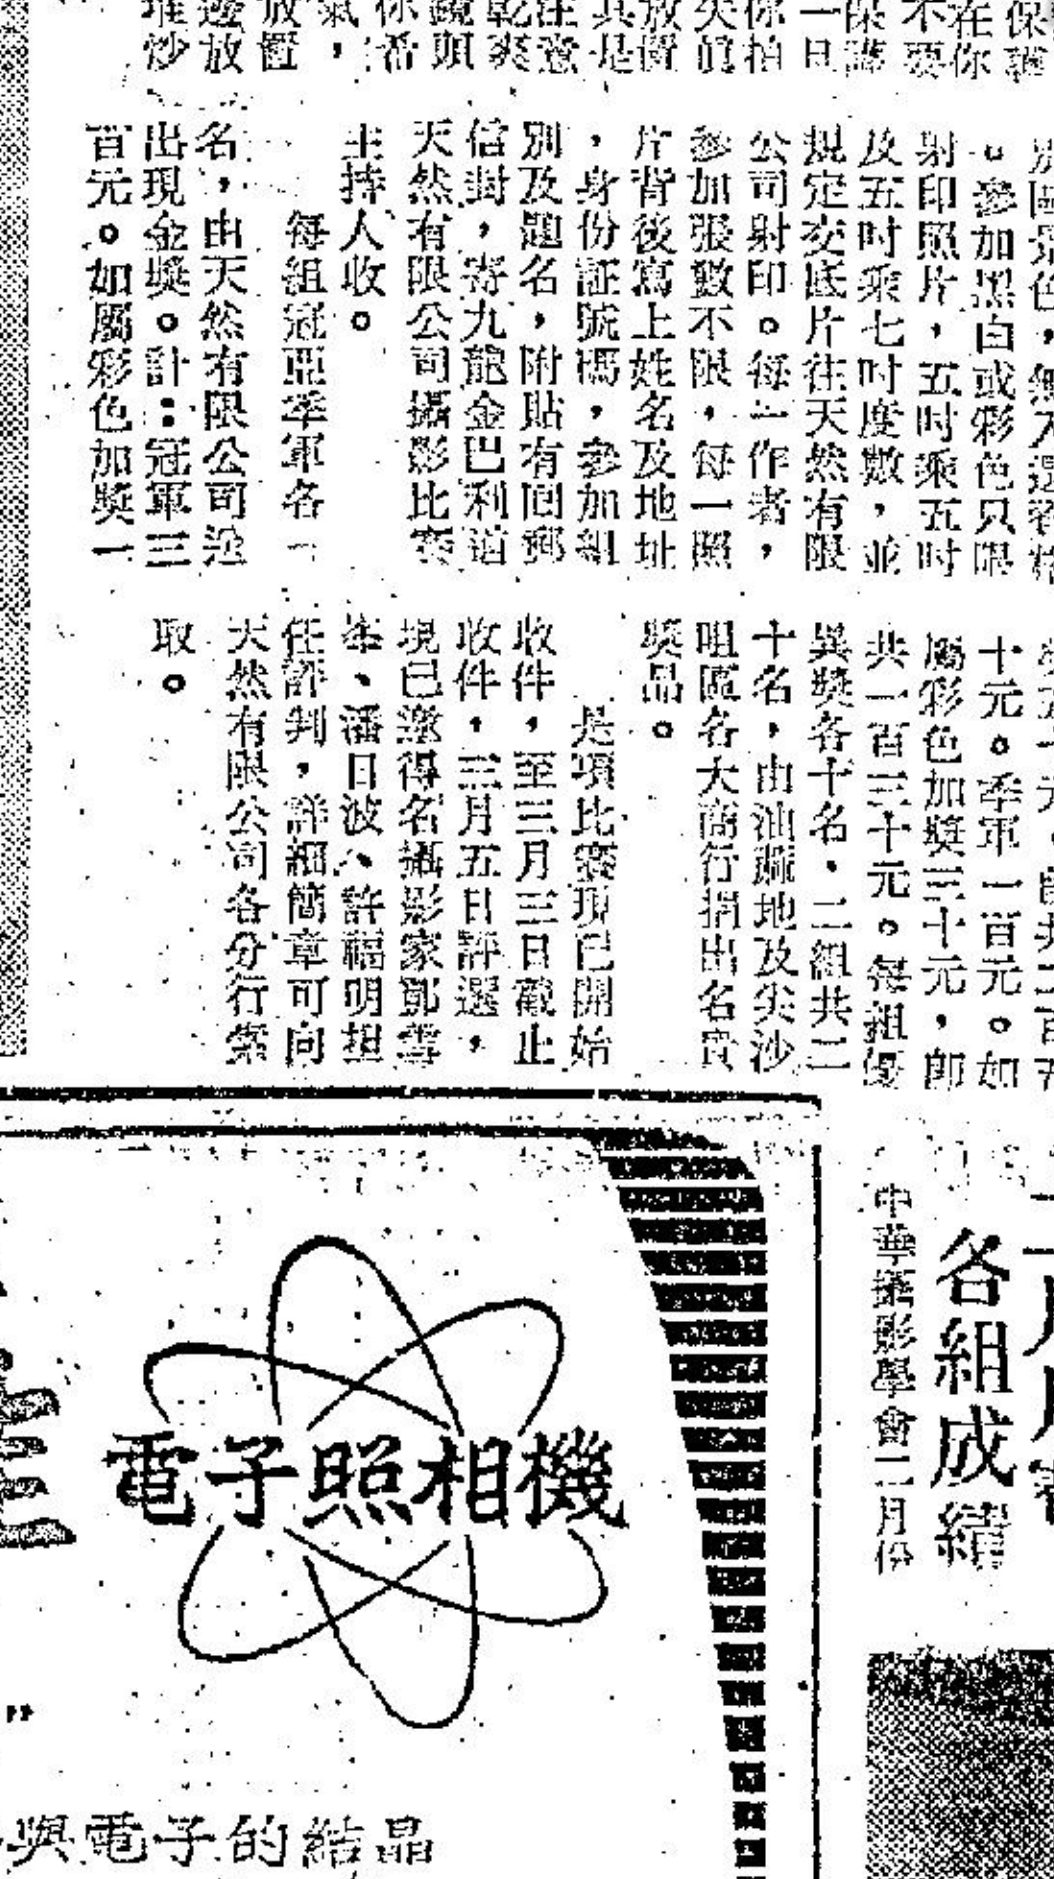 保護
在你
不要
保護
一旦
你拍
失真
放置
其是
注意
乾爽
鏡頭
你希
氣，
放置
邊放
堆炒
。參加黑白或彩色只限
射印照片，五吋乘五吋
及五吋乘七吋度數，並
規定交底片往天然有限
公司射印。每一作者，
參加張數不限，每一照
片背後寫上姓名及地址
，身份証號碼，參加組
別及題名，附貼有回郵
信封，寄九龍金巴利道
天然有限公司攝影比賽
主持人收。
每組冠亞季軍各一
名，由天然有限公司送
出現金獎。計：冠軍三
百元。如屬彩色加獎一
十元。季軍一百元。如
屬彩色加獎三十元，即
共一百三十元。每組優
異獎各十名，二組共二
十名，由油蔴地及尖沙
咀區各大商行捐出名貴
獎品。
是項比賽現已開始
收件，至三月三日截止
收件，三月五日評選，
現已邀得名攝影家鄧雪
峯、潘日波、許福明担
任評判，詳細簡章可向
天然有限公司各分行索
取。
各組成績
中華攝影學會二月份
電子照相機
與電子的結晶